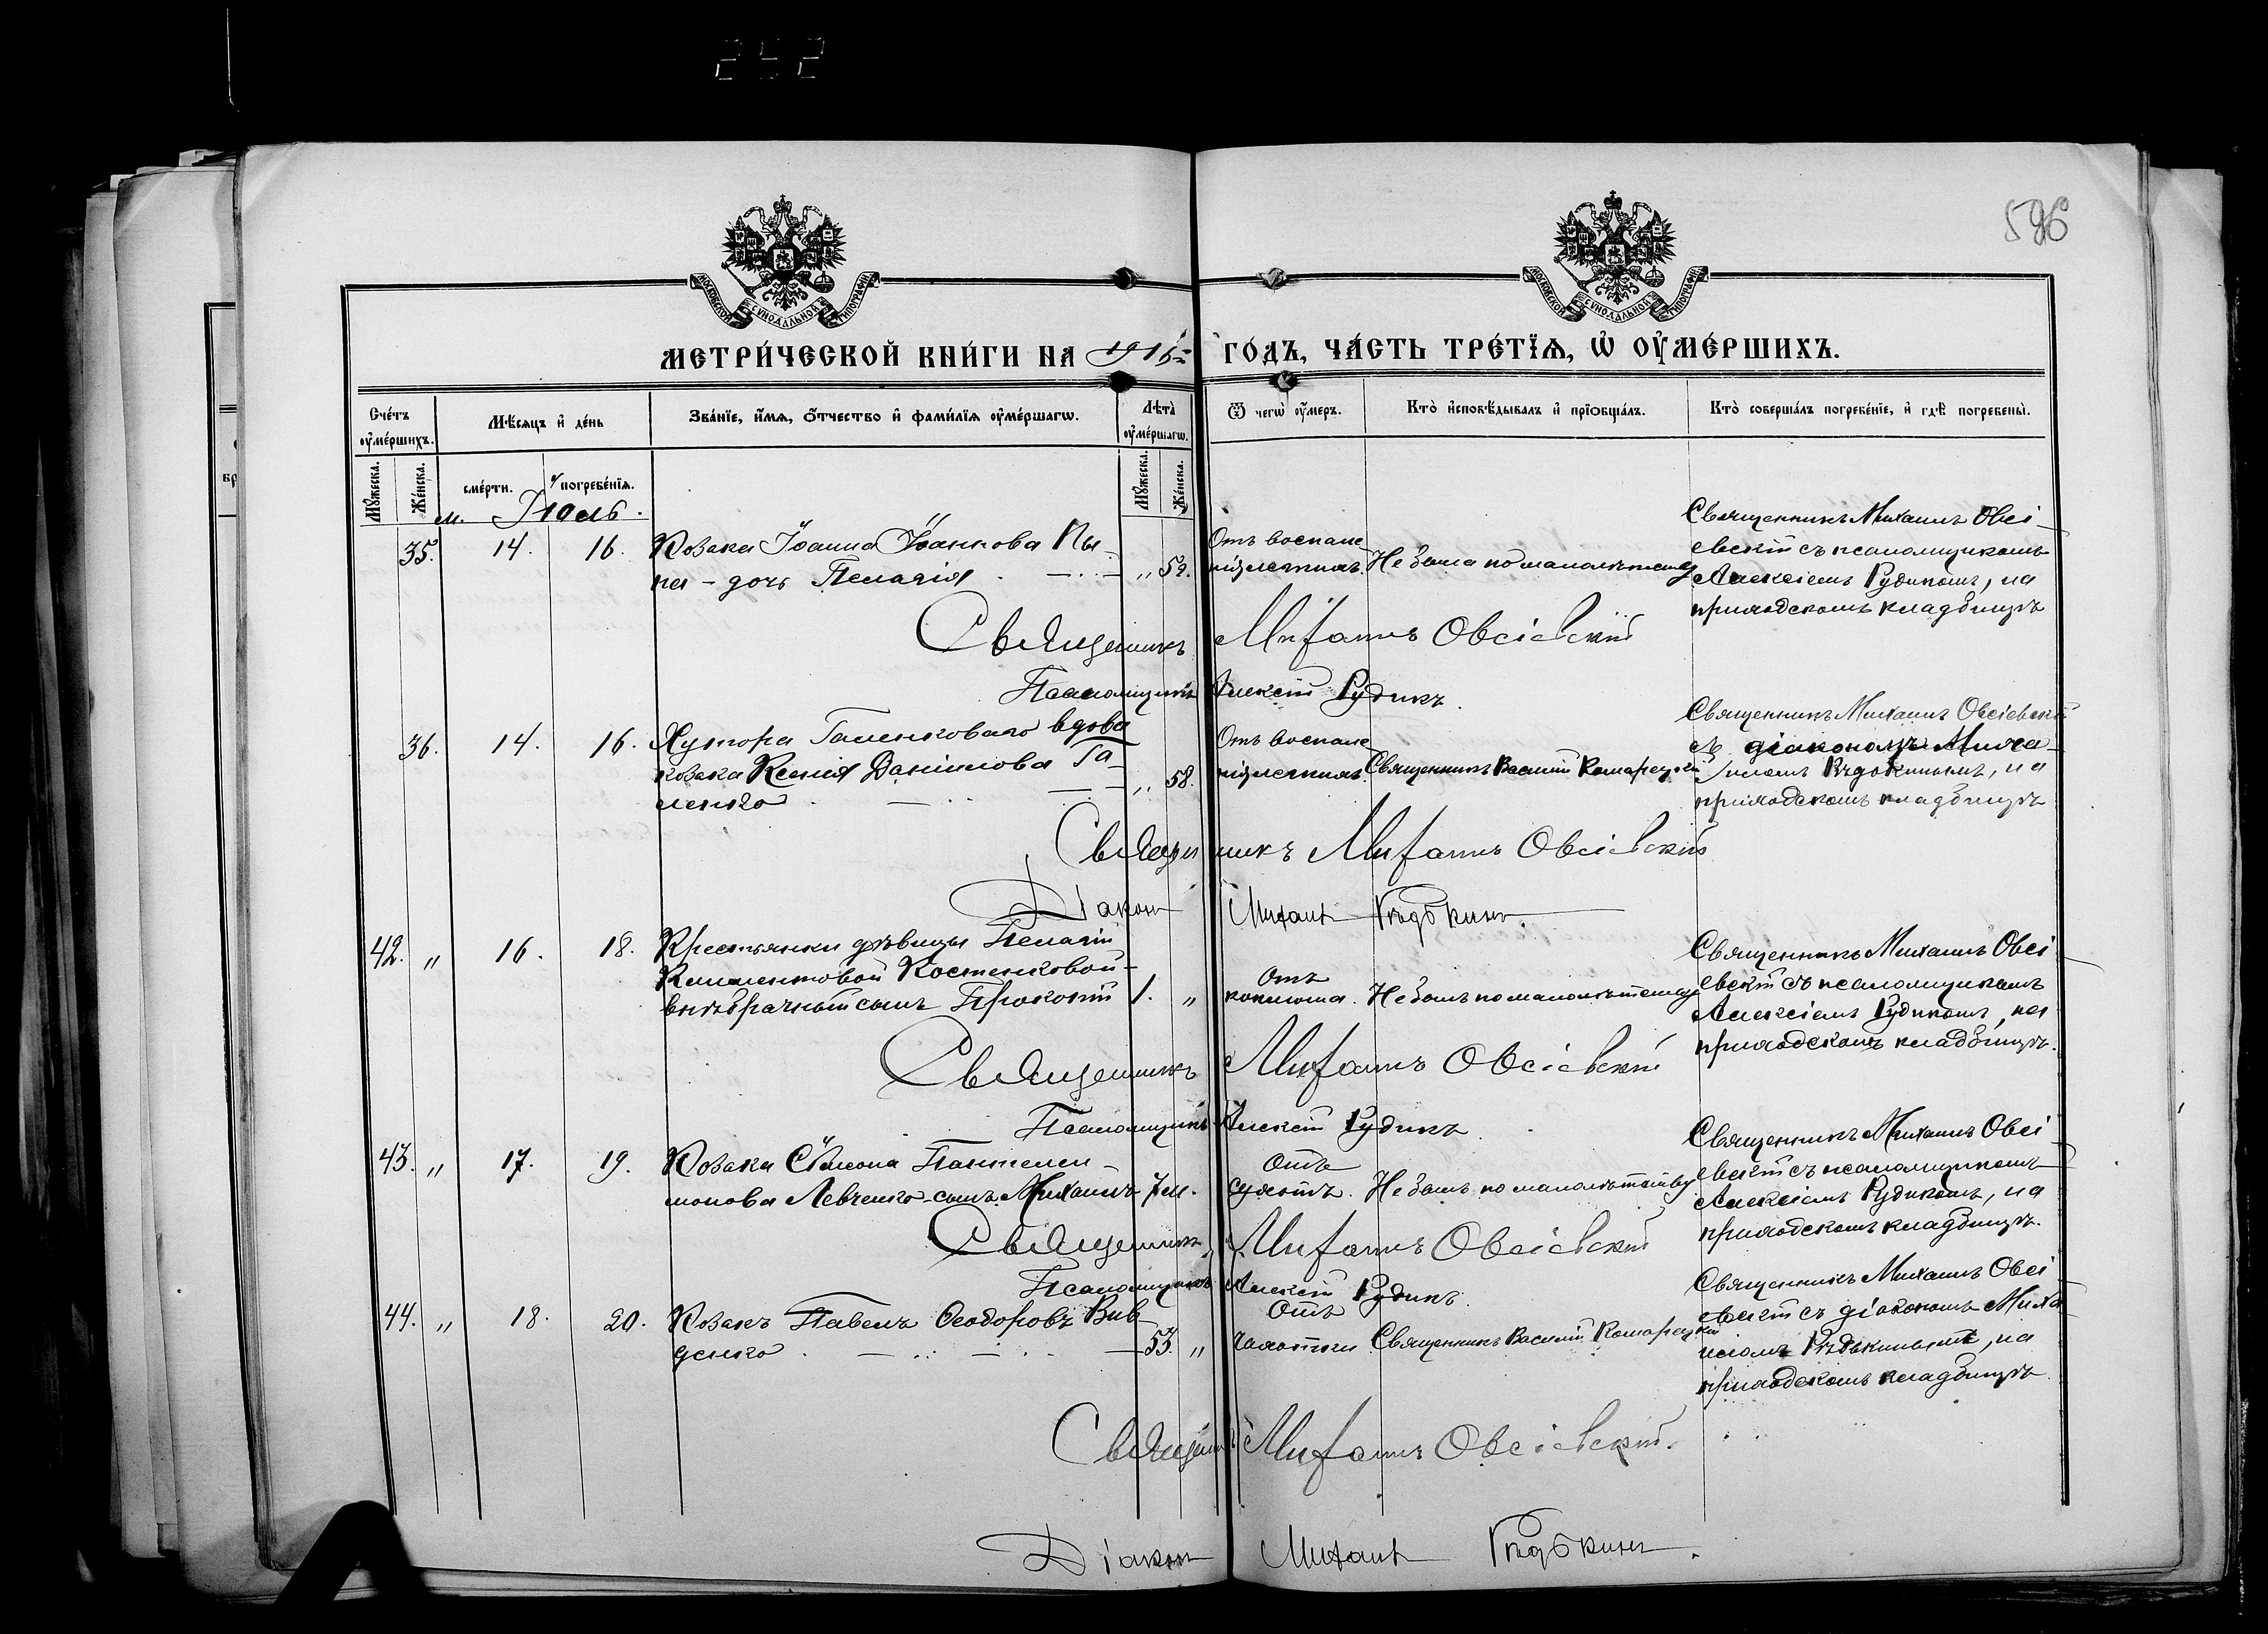 252
596
МОСКОВСКОЙ СѴНОДАЛЬНОЙ ТИПОГРАФІИ
МОСКОВСКОЙ СѴНОДАЛЬНОЙ ТИПОГРАФІИ
МЕТРИ́ЧЕСКОЙ КНИ́ГИ НА 1916 ГО́ДЪ, ЧА́СТЬ ТРЕ́ТЇѦ, Ѡ ОУ҆МЕ́РШИХЪ.
Сче́тъ оу҆ме́ршихъ.
Мѣ́сяцъ и҆ де́нь
Зва́нїе, и҆́мѧ, ѻ҆́тчество и҆ фами́лїѧ оу҆ме́ршагѡ.
Лѣ́та оу҆ме́ршагѡ.
Ѿ чегѡ̀ оу҆́меръ.
Кто̀ и҆сповѣ́дывалъ и҆ прїѻбща́лъ.
Кто̀ соверша́лъ погребе́нїе, и҆ гдѣ̀ погребены̀.
Мꙋ́жеска.
Же́нска.
сме́рти.
погребе́нїѧ.
Мꙋ́жеска.
Же́нска.
м. Іюль.
35. 14. 16. Козака Іоанна Іоаннова
на – дочь Пелагія „
Отъ воспале
нія легкихъ. Не была по малолѣтству
Священникъ Михаилъ Овсі-
евскій съ псаломщикомъ
Алексіемъ Рудикомъ, на
приходскомъ кладбищѣ
Священникъ Михаилъ Овсіевскій
Псаломщикъ Алексій Рудикъ.
36. 14. 16. Хутора Галенковаго вдова
козака Ксенія Даніилова Га-
ленко „ 58.
Отъ воспале
нія легкихъ. Священникъ Василій Комарецкій
Священникъ Михаилъ Овсіевскій
съ діакономъ Миха-
иломъ Рѣдькинымъ, на
приходскомъ кладбищѣ
Священникъ Михаилъ Овсіевскій
Діаконъ Михаилъ Рѣдькинъ.
42. „ 16. 18. Крестьянки дѣвицы Пелагіи
Климентовой Костенковой-
внѣбрачный сынъ Прокопій 1. „
Отъ
коклюша. Не былъ по малолѣтству
Священникъ Михаилъ Овсі
евскій съ псаломщикомъ
Алексіемъ Рудикомъ, на
приходскомъ кладбищѣ.
Священникъ Михаилъ Овсіевскій
Псаломщикъ Алексій Рудикъ
43. „ 17. 19. Козака Сѵмеона Пантелеи-
монова Левченко-сынъ Михаилъ 7 м.
Отъ
сухотъ. Не былъ по малолѣтству
Священникъ Михаилъ Овсі
евскій съ псаломщикомъ
Алексіемъ Рудикомъ, на
приходскомъ кладбищѣ.
Священникъ Михаилъ Овсіевскій
Псаломщикъ Алексій Рудикъ.
44. „ 18. 20. Козакъ Павелъ Ѳеодоровъ Вив-
денко 53. „
Отъ
чахотки Священникъ Василій Комарецкій
Священникъ Михаилъ Овсі
евскій съ діакономъ Миха
иломъ Рѣдькинымъ, на
приходскомъ кладбищѣ
Священникъ Михаилъ Овсіевскій.
Діаконъ Михаилъ Рѣдькинъ.